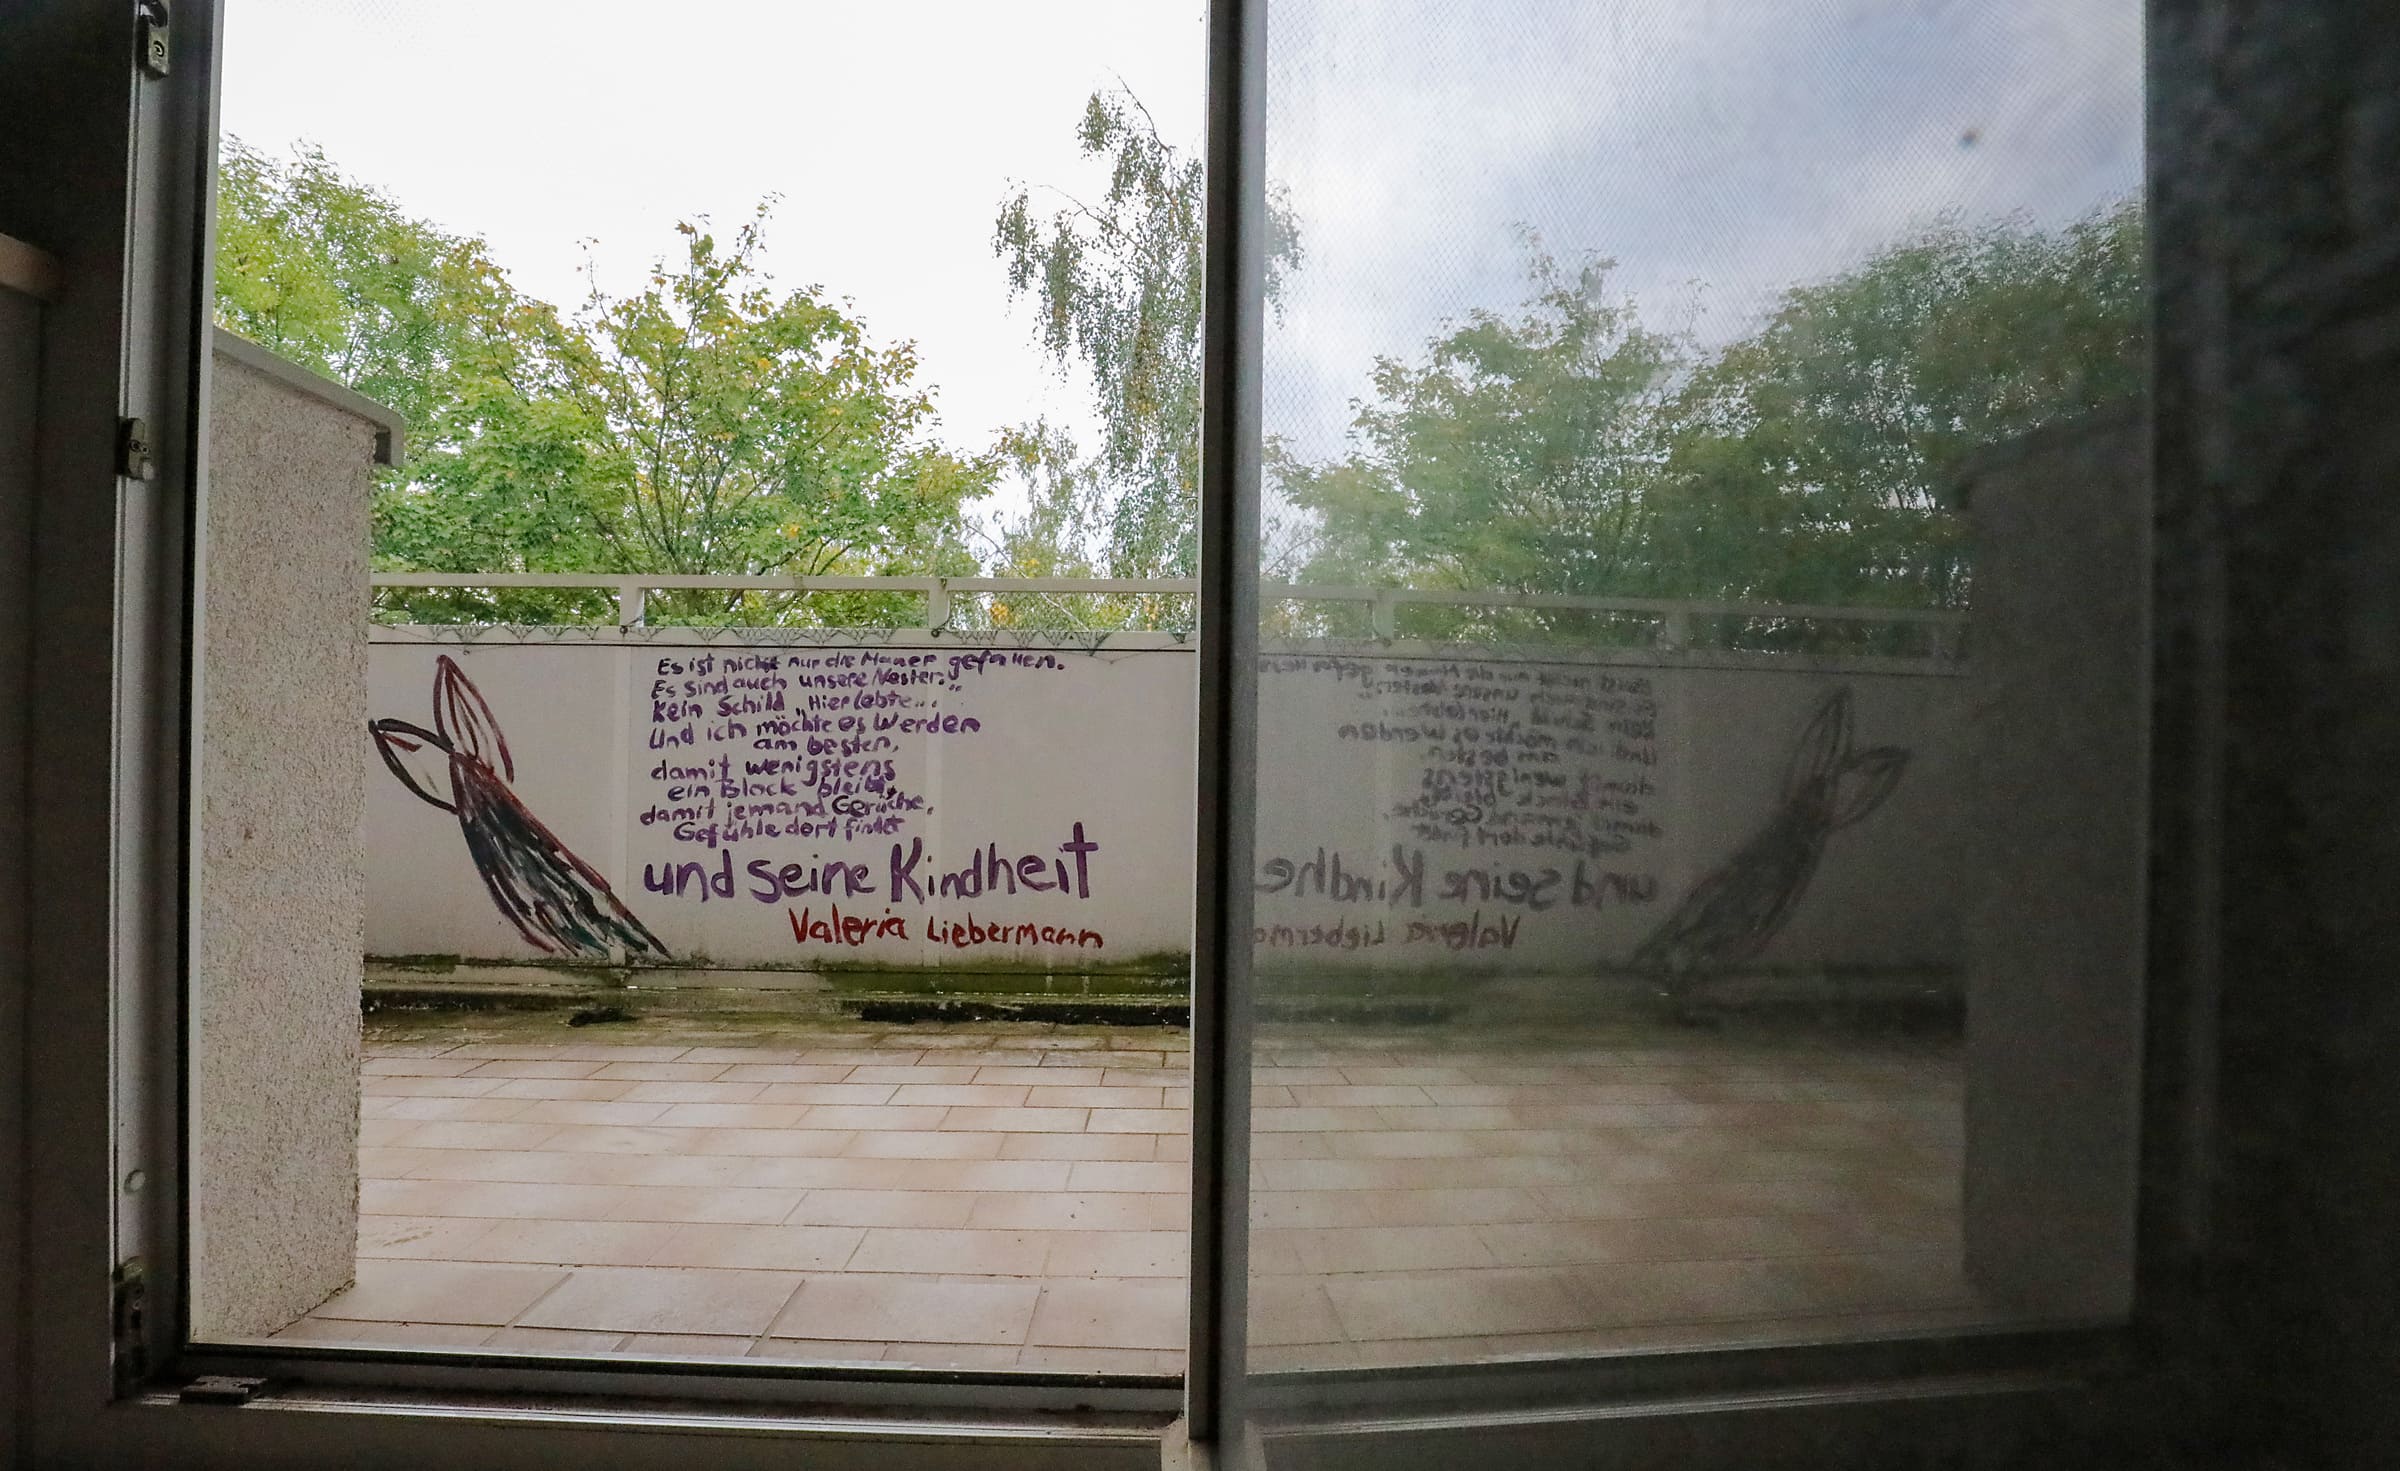 Es ist nicht nur die Mauer gefallen.
Es sind auch unsere Nester.
Kein Schild „Hier lebte..."
Und ich möchte es werden
am besten,
damit wenigstens
ein Block bleibt,
damit jemand Gerüche,
Gefühle dort findet
und seine Kindheit
Valeria Liebermann